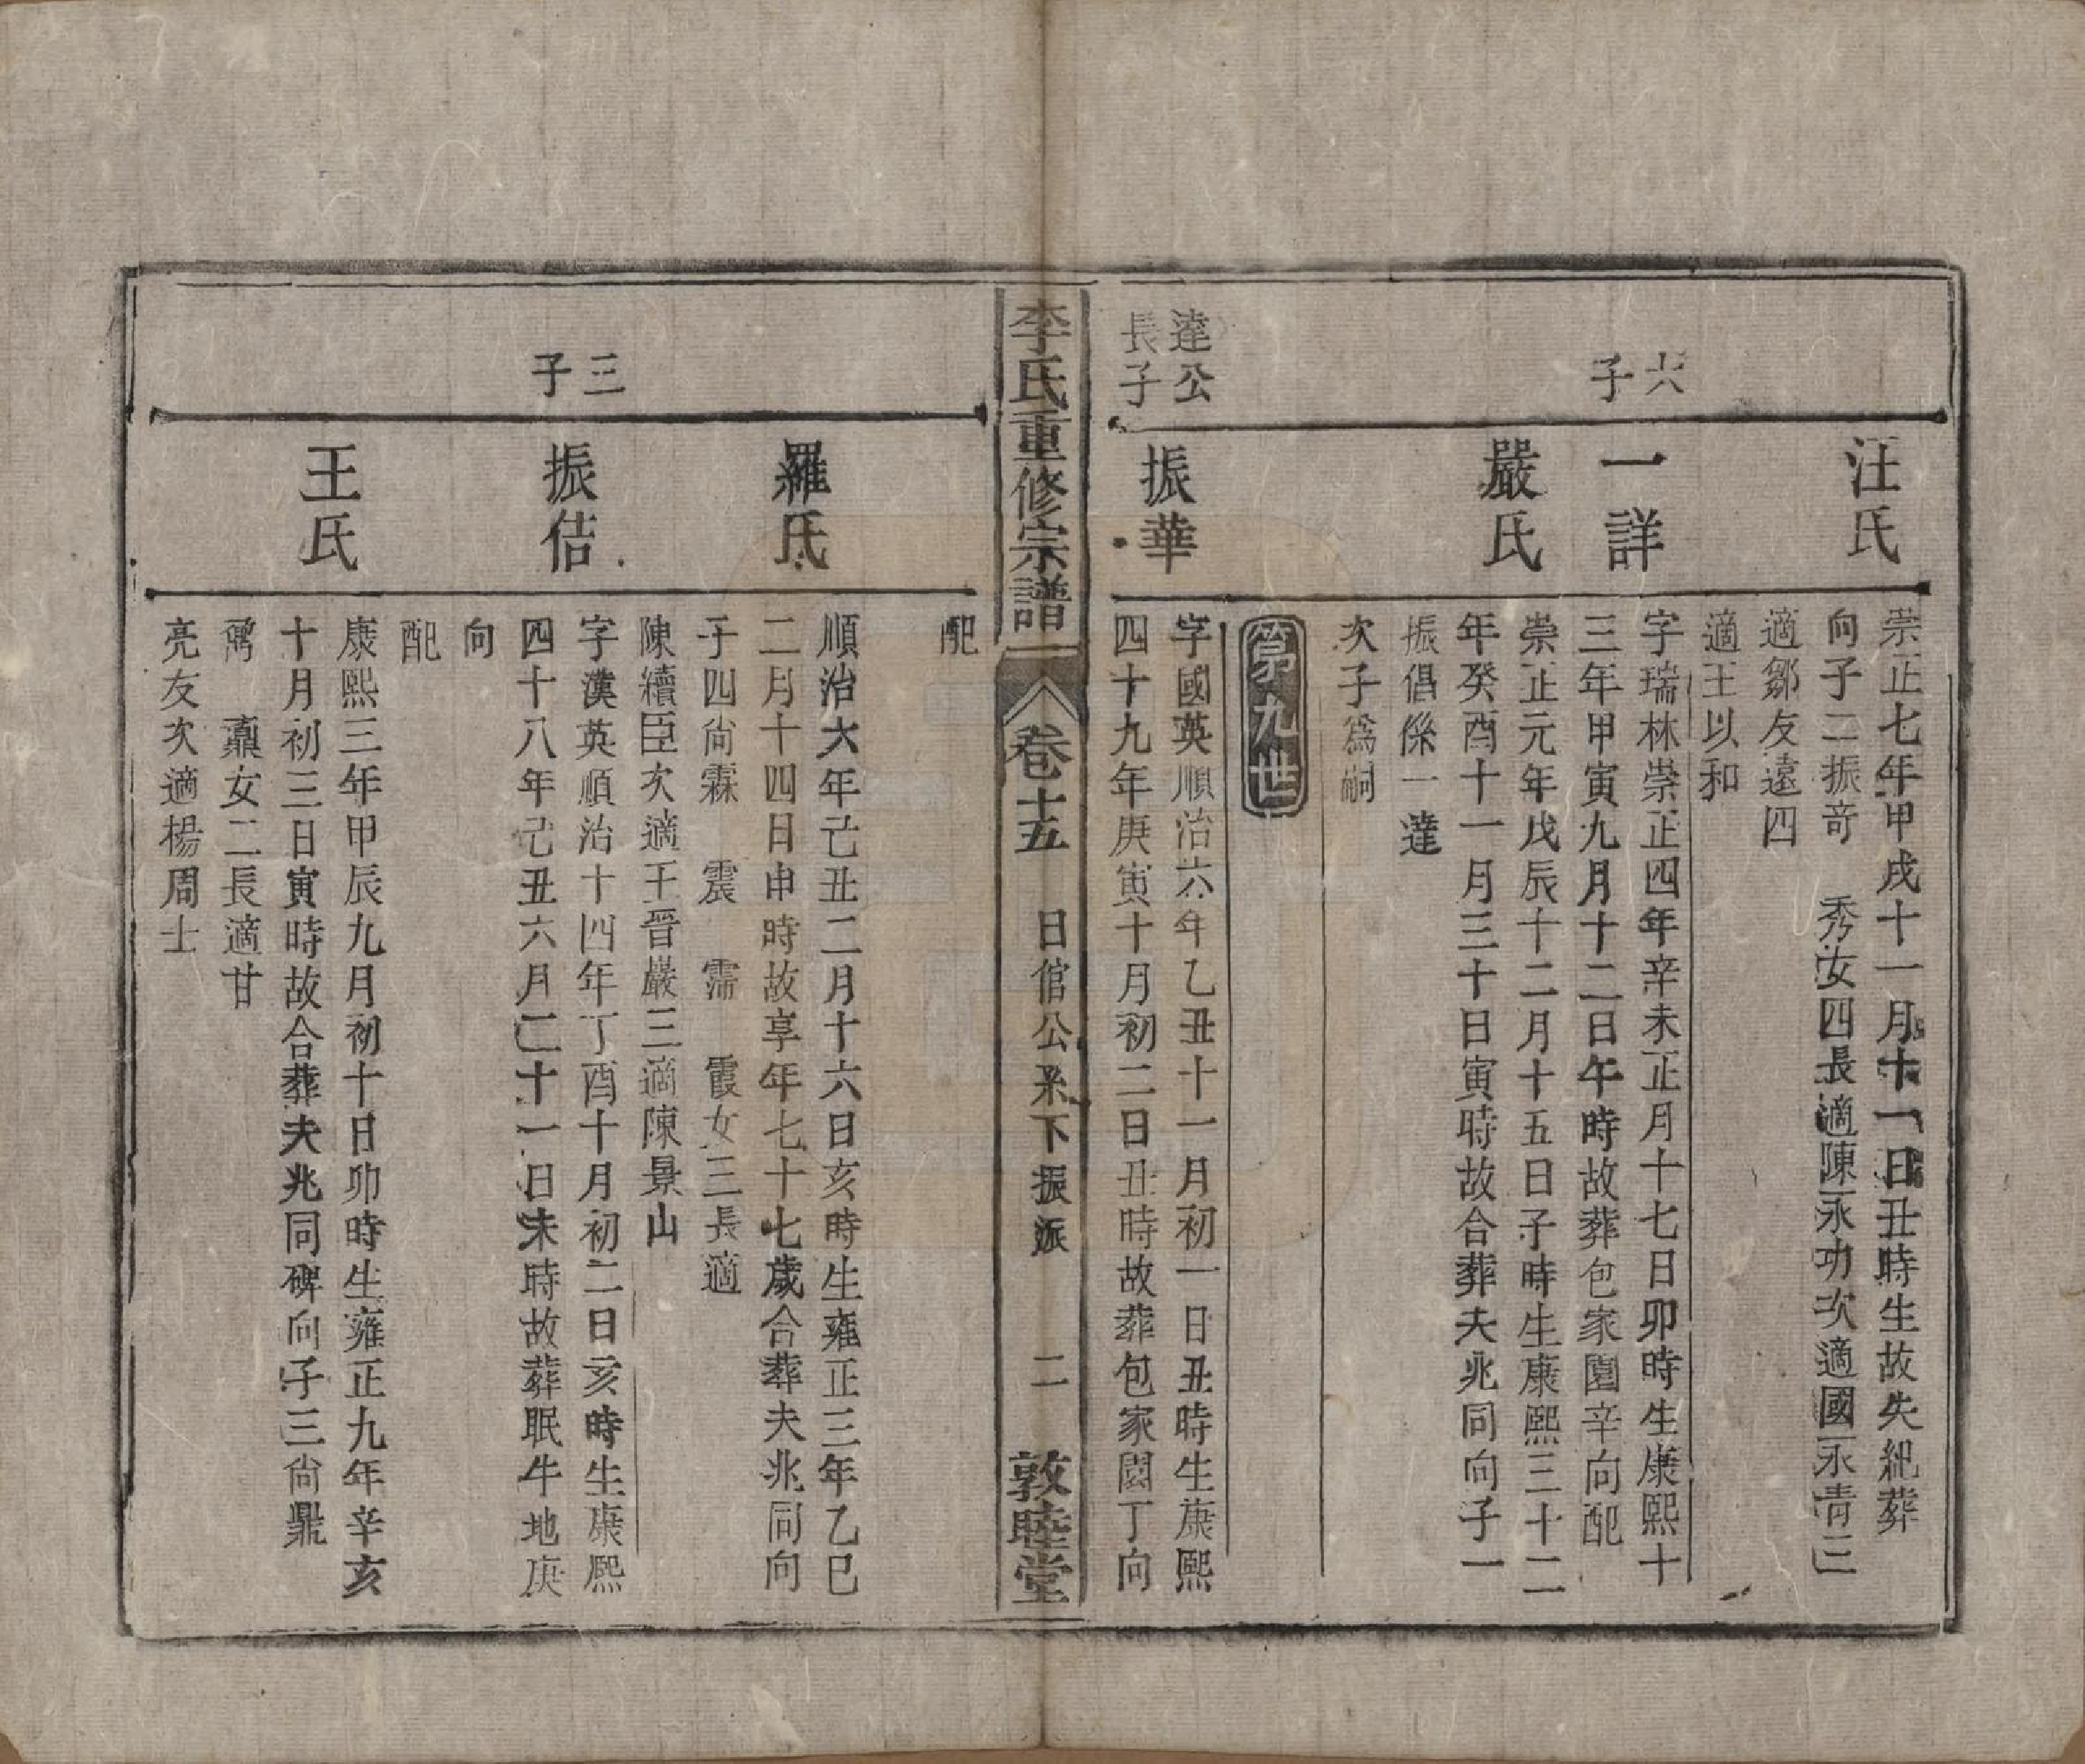 汪氏
崇正七年甲戌十一月十一日丑時生故失紀葬
向子二振奇 秀女四長適陳永功次適國永青三
適鄒友遠四
適王以和
六子
一詳
字瑞林崇正四年辛未正月十七日卯時生康熙十
三年甲寅九月十二日午時故葬包家園辛向配
嚴氏
崇正元年戊辰十二月十五日子時生康熙三十二
年癸酉十一月三十日寅時故合葬夫兆同向子一
振倡係一達
次子爲嗣
第九世
達公
長子
振華
字國英順治六年乙丑十一月初一日丑時生康熙
四十九年庚寅十月初二日丑時故葬包家園丁向
李氏重修宗譜 卷十五 日倌公系下振派 二 敦睦堂
配
羅氏
順治六年己丑二月十六日亥時生雍正三年乙巳
二月十四日申時故享年七十七歲合葬夫兆同向
子四尙霖 震 霈 霞女三長適
陳續臣次適王晉巖三適陳景山
三子
振佶
字漢英順治十四年丁酉十月初二日亥時生康熙
四十八年己丑六月二十一日未時故葬眠牛地庚
向
配
王氏
康熙三年甲辰九月初十日卯時生雍正九年辛亥
十月初三日寅時故合葬夫兆同碑向子三尙鼎
鼐 鼒女二長適甘
亮友次適楊周士